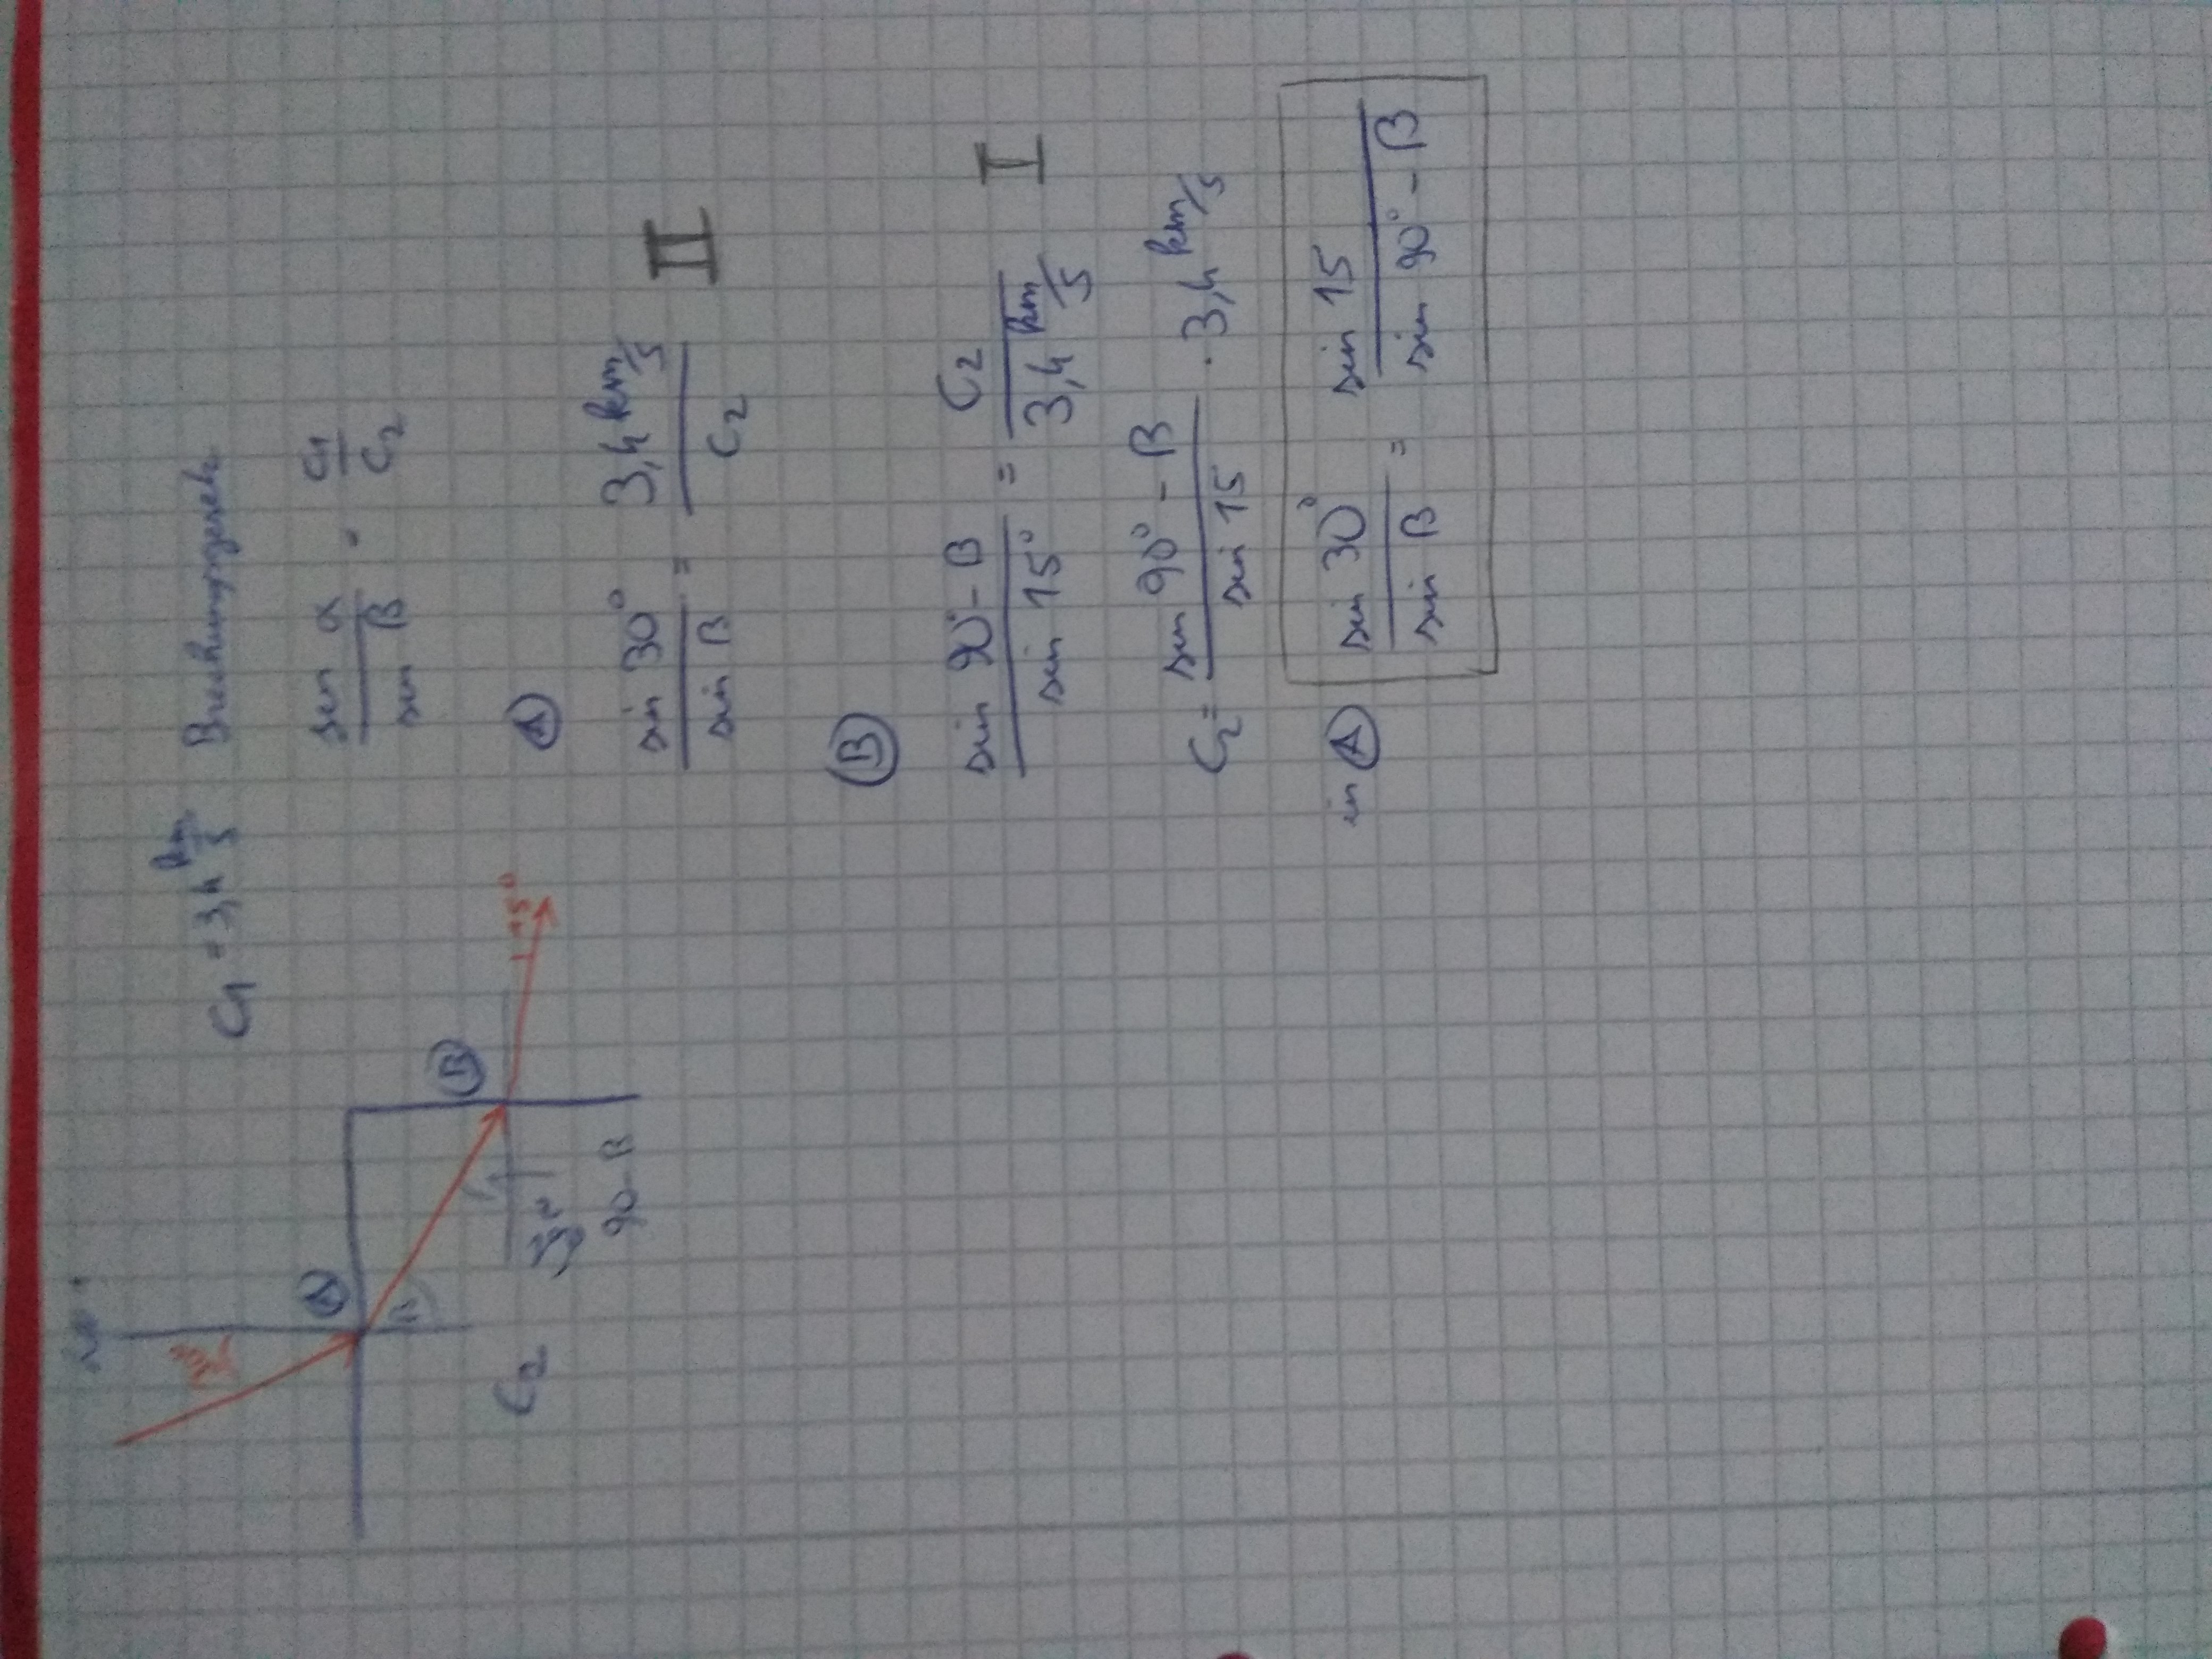 C1 = 3,4 km/s Brechungsgesetz
sin α / sin β = c1 / c2
A
sin 30° / sin β = 3,4 km/s / c2 II
B
sin 90° - β / sin 15° = c2 / 3,4 km/s I
C2 = sin 90° - β / sin 15 · 3,4 km/s
in A sin 30° / sin β = sin 15 / sin 90° - β
A
B
15°
β
90 - β
C2